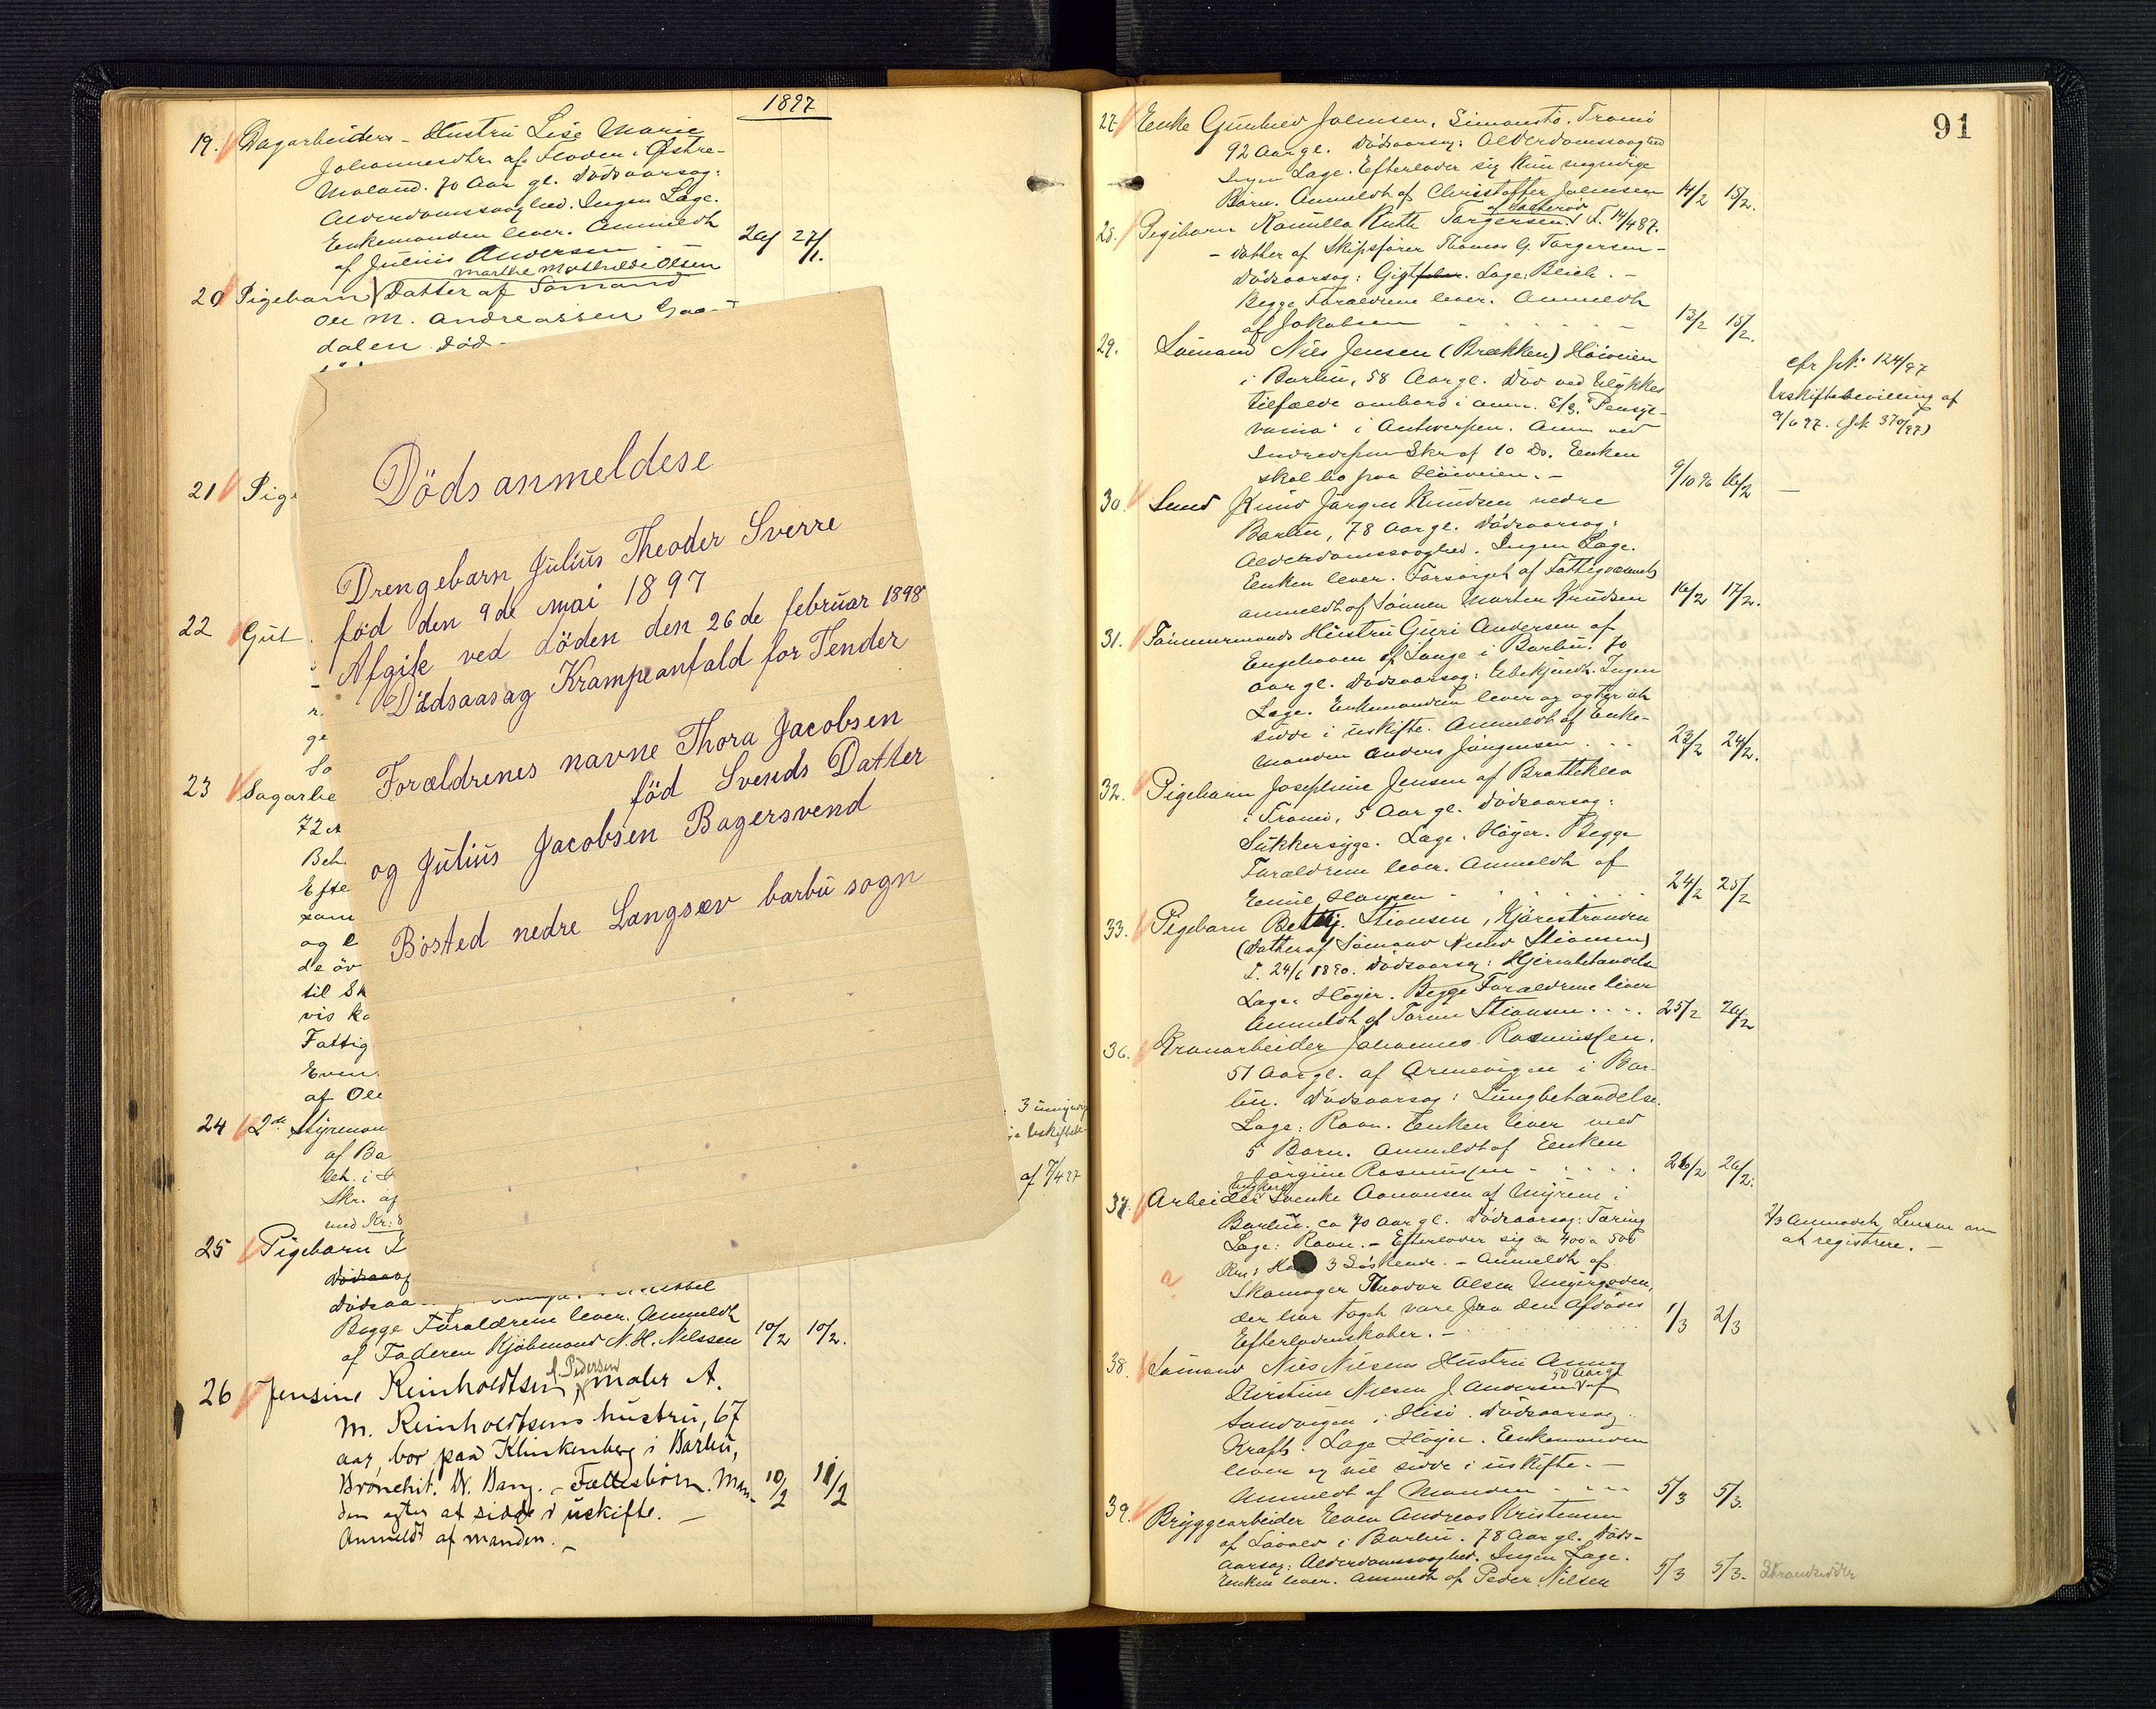 1897
19. Dagarbeiders - Hustru Lise Marie
Johannesdtr af Floden i Østre-
Moland. 70 Aar gl. Dødsaarsag:
Alderdomssvaghed. Ingen Læge.
Enkemanden lever. Anmeldt
af Julius Andersen 26/1 27/1.
Marthe Mathilde Olsen
20 Pigebarn Datter af Sømand
Ole M. Andreassen
dalen Død
21 Pig
22 Gut
r.
ge
So
23 Sagarbe
72 A
Beh.
Efte
som
og l
de öv
til Sk
vis ka
Fattig
Even
af Ole
24 2de Styrman
af Ba
Skr. af
med Kr:
3 umyndige
af 7/4 97
25 Pigebarn
Dødsaa
Begge Forældrene lever. Anmeldt
af Faderen Kjøbmand N. H. Nilssen 10/2 10/2.
f. Pedersen
26 Jensine Reinholdtsen maler A.
M. Reinholdtsens hustru, 67
aar, bor paa Klinkenberg i Barbu,
Bronchit. Dr. Bang. - Fællesbörn. Man-
den agter at sidde i uskifte. - 10/2 11/2
Anmeldt af manden. -
Dödsanmeldese
Drengebarn Julius Theoder Sverre
föd den 9de mai 1897
Afgik ved döden den 26de februar 1898
Dödsaasag Krampeanfald for Tender
Forældrenes navne Thora Jacobsen
föd Svends Datter
og Julius Jacobsen Bagersvend
Bösted nedre Langsæv barbu sogn
91
27. Enke Gunhild Johnsen, Simonstø, Tromø
92 Aar gl. Dødsaarsag: Alderdomssvaghed
Ingen Læge. Efterlader sig kun myndige
Børn. Anmeldt af Christoffer Johnsen 14/2 15/2.
28. Pigebarn Kamilla Ruth Torgersen F. 14/4 87.
- Datter af Skipsfører Thomas G. Torgersen -
Dødsaarsag: Gigtfeber. Læge: Bleich. -
Begge Forældrene lever. Anmeldt
af Jakobsen 13/2 15/2.
29. Sømand Nils Jensen (Brækken) Höiveien
i Barbu, 58 Aar gl. Død ved Ulykkes
tilfælde ombord i amr. S/S. "Pensyl-
vania" i Antwerpen. Anm ved
Indredepm Skr af 10 Ds. Enken
skal bo paa Höiveien. - 9/10 96 16/2 -
cfr Jr. 124/97
Uskiftebevilling af
9/6 97. (Jr 370/97)
30. Lund Knud Jørgen Knudsen nedre
Barbu, 78 Aar gl. Dødsaarsag:
Alderdomssvaghed. Ingen Læge.
Enken lever. Forsørget af Fattigvæsenet
anmeldt af Sønnen Morten Knudsen 16/2 17/2.
31. Tømmermands Hustru Guri Andersen af
Engehaven af Songe i Barbu. 70
Aar gl. Dødsaarsag: Ubekjendt. Ingen
Læge. Enkemanden lever og agter at
sidde i uskifte. Anmeldt af Enke-
manden Anders Jörgensen 23/2 24/2.
32. Pigebarn Josephine Jensen af Brattekleo
i Tromø, 5 Aar gl. Dødsaarsag:
Sukkersyge. Læge: Höyer. Begge
Forældrene lever. Anmeldt af
Emil Hansen 24/2 25/2
33. Pigebarn Betsy Stiansen, Kjærestranden
(Datter af Sømand Knud Stiansen)
F. 24/6 1890. Dødsaarsag: Hjernebetændelse
Læge: Höyer. Begge Forældrene lever
Anmeldt af Stiansen 25/2 26/2
36. Kranarbeider Johannes Rasmussen.
51 Aar gl. af Arnevigen i Bar-
bu. Dødsaarsag: Lungbetændelse.
Læge: Ravn. Enken lever med
5 Børn. Anmeldt af Enken
Jørgine Rasmussen 26/2 26/2.
Ungkarl
37. Arbeider Svenke Aanonsen af Myrene i
Barbu. ca 70 Aar gl. Dødsaarsag: Tæring
Læge: Ravn. - Efterlader sig ca 400 a 500
Krs: Har 3 Söskende. - Anmeldt af
Skomager Theodor Olsen
der har taget vare paa den Afdødes
Efterladenskaber. - 1/3 2/3
2/3 Anmodet Lensm om
at registrere. -
38. Sømand Nils Nilsens Hustru Anne
50 Aar gl
Kirstine Nilsen f. Andersen af
Sandvigen i Hisö. Dødsaarsag:
Kræft. Læge Höyer. Enkemanden
lever og vil sidde i uskifte. -
Anmeldt af Manden 5/3 5/3.
39. Bryggearbeider Even Andreas Kristensen
af Løvold i Barbu. 78 Aar gl. Døds-
aarsag: Alderdomssvaghed. Ingen Læge.
Enken lever. Anmeldt af Peder Nilsen 5/3 5/3. Strandsidder